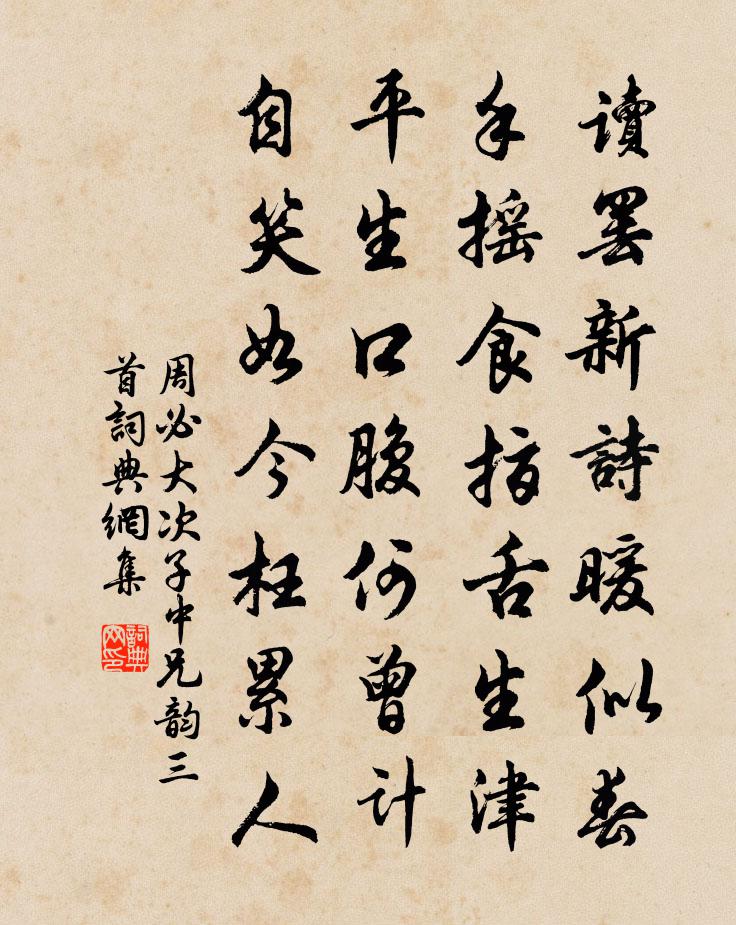 讀罷新詩暖似春
手搖食指舌生津
平生口腹何曾計
自笑如今枉累人
周必大次子中兄韵三
首詞典網集
詞典
网印